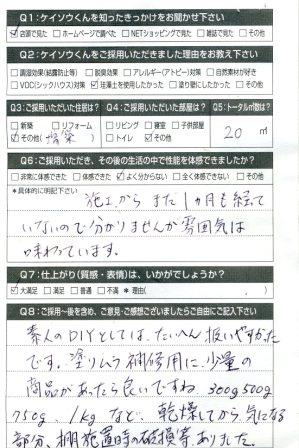 Q1：ケイソウくんを知ったきっかけをお聞かせ下さい
☑店頭で見た □ホームページで調べた □NETショッピングで見た □雑誌で見た □その他
Q2：ケイソウくんをご採用いただきました理由をお教え下さい
□調湿効果(結露防止等) □脱臭効果 □アレルギー(アトピー)対策 □自然素材が好き
□VOC(シックハウス)対策 ☑珪藻土を使用したかった □塗り壁にしたかった □その他
Q3：ご採用いただいた住居は？ Q4：ご採用いただいたお部屋は？ Q5：トータル㎡数は？
□新築 □リフォーム □リビング □寝室 □子供部屋
☑その他(増築) □トイレ ☑その他 20 ㎡
Q6：ご採用いただき、その後の生活の中で性能を体感できましたか？
□非常に体感できた □体感できた ☑よく分からない □全く体感できない □その他
＊具体的に明記下さい
施工からまだ1カ月も経って
いないので分かりませんが雰囲気は
味わっています。
Q7：仕上がり(質感・表情)は、いかがでしょうか？
☑大満足 □満足 □普通 □不満 ＊理由(
Q8：ご採用～後を含め、ご意見・ご感想ございましたらご自由にご記入下さい
素人のDIYとしては、たいへん扱いやすかった
です。塗りムラ補修用に、少量の
商品があったら良いですね。300g 500g
750g、1kgなど、乾燥してから気になる
部分、棚放置時の破損等ありました。